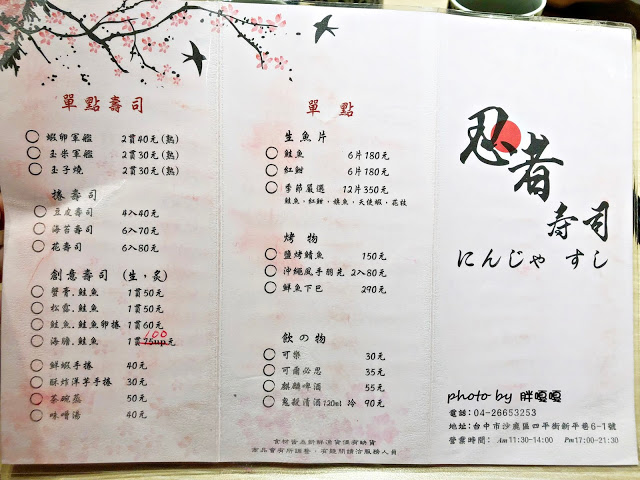 單點壽司
蝦卵軍艦 2貫40元(熟)
玉米軍艦 2貫30元(熟)
玉子燒 2貫30元(熟)
捲壽司
豆皮壽司 4入40元
海苔壽司 6入70元
花壽司 6入80元
創意壽司 (生,炙)
蟹膏.鮭魚 1貫50元
松露.鮭魚 1貫50元
鮭魚.鮭魚卵捲 1貫60元
100
海膽.鮭魚 1貫75up元
鮮蝦手捲 40元
酥炸洋芋手捲 30元
茶碗蒸 50元
味噌湯 40元
單點
生魚片
鮭魚 6片180元
紅魽 6片180元
季節嚴選 12片350元
鮭魚,紅魽,旗魚,天使蝦,花枝
烤物
鹽烤鯖魚 150元
沖繩風手羽先 2入80元
鮮魚下巴 290元
飲の物
可樂 30元
可爾必思 35元
麒麟啤酒 55元
鬼殺清酒120ml 冷 90元
食材皆為新鮮進貨偶有缺貨
本品會有所調整,有疑問請洽服務人員
忍者
寿司
にんじゃ すし
photo by 胖嘎嘎
電話:04-26653253
地址:台中市沙鹿區四平街新平巷6-1號
營業時間: Am11:30-14:00 Pm17:00-21:30